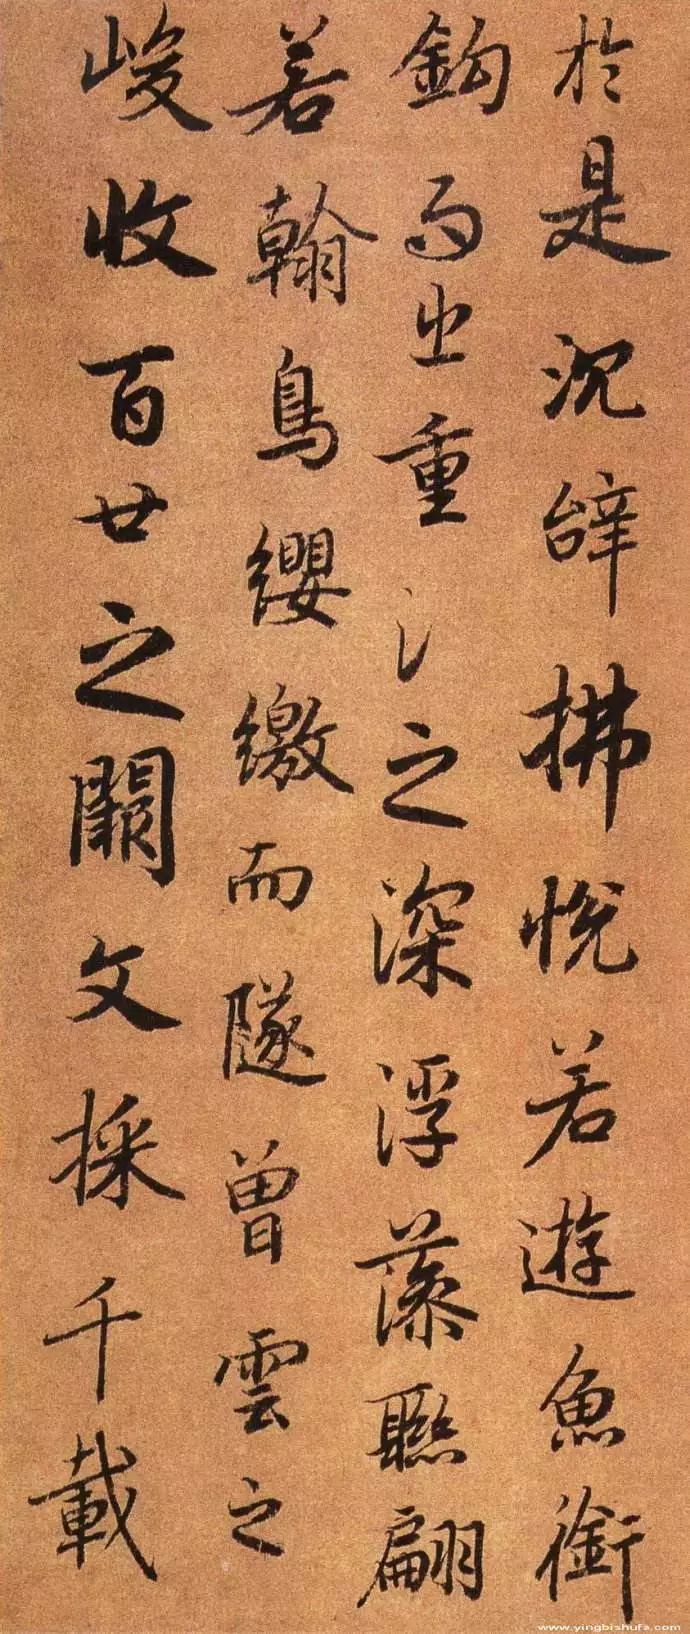 於是沉辞拂悅若遊魚銜
鈎而出重氵之深浮藻聯翩
若翰鳥纓繳而隧曾雲之
峻收百廿之闕文採千載
www.yingbishufa.com